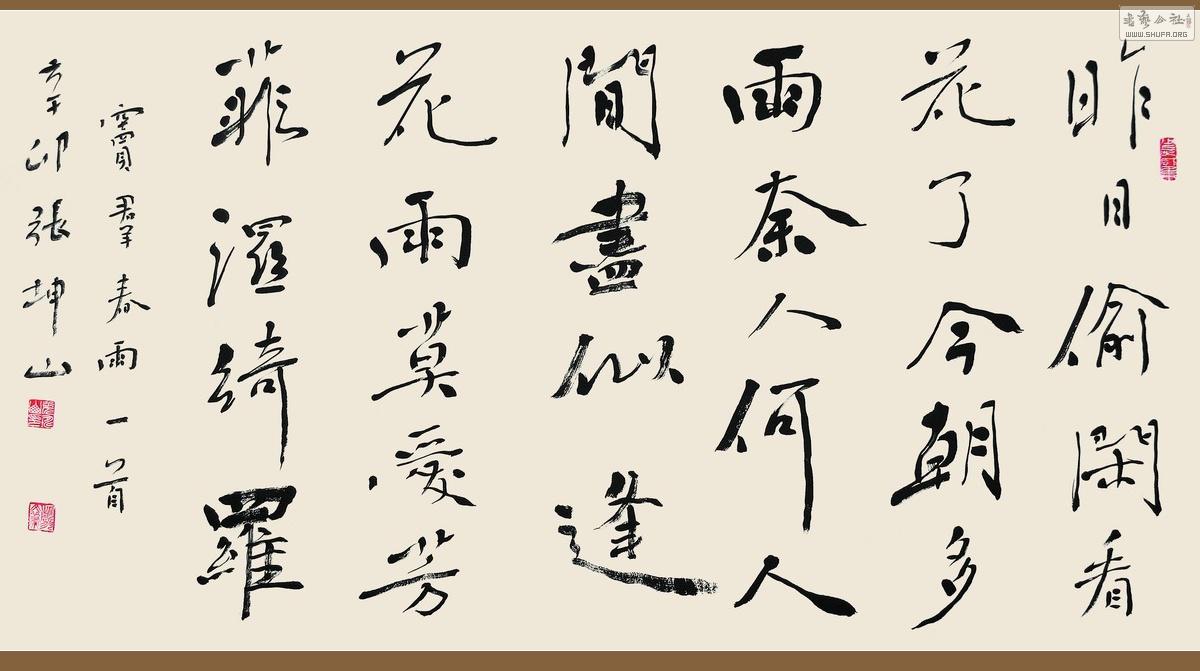 昨日偷閑看
花了今朝多
雨奈人何人
間盡似逢
花雨莫愛芳
菲濕綺羅
竇羣春雨一首
辛卯張坤山
書藝公社
WWW.SHUFA.ORG